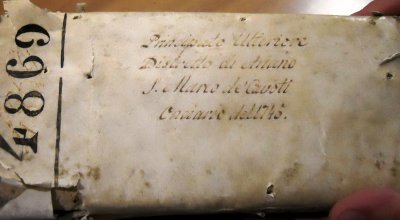 4869
Principato Ulteriore
Distretto di Ariano
S. Marco de' Cavoti
Onciario del 1745.